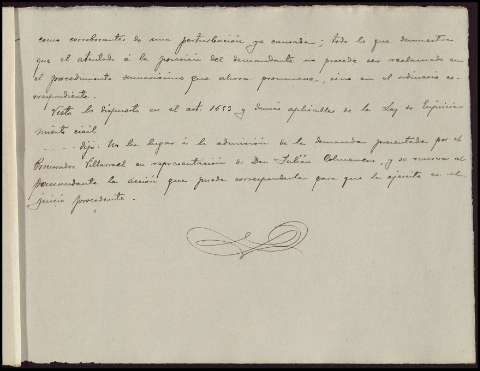 como corroborantes de una perturbación ya causada; todo lo que demuestra
que el atentado á la posesión del demandante no puede ser reclamado en
el procedimiento sumarísimo que ahora promueve, sino en el ordinario co-
rrespondiente.
Visto lo dispuesto en el art. 1653 y demás aplicables de la Ley de Enjuicia-
miento civil
dijo: No ha lugar á la admisión de la demanda presentada por el
Procurador Villarreal en representación de Don Julián y se reserva al
demandante la acción que pueda corresponderle para que la ejercite en el
juicio procedente.